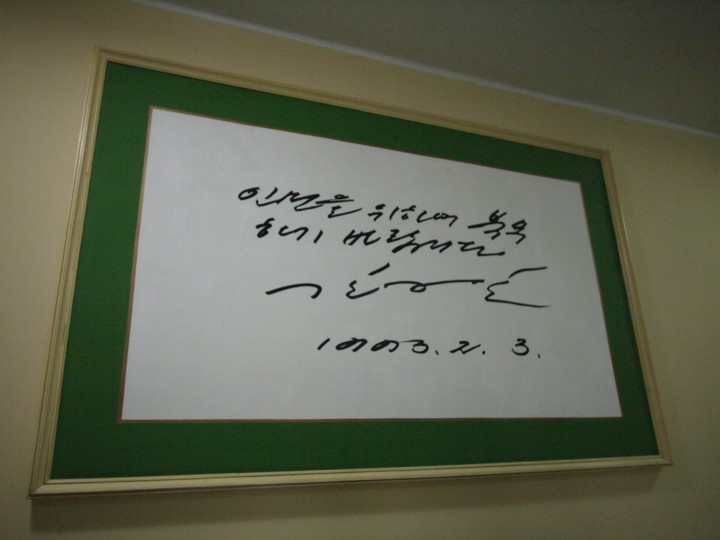 인민을 위하여 복무
하기 바랍니다
1993. 2. 3.